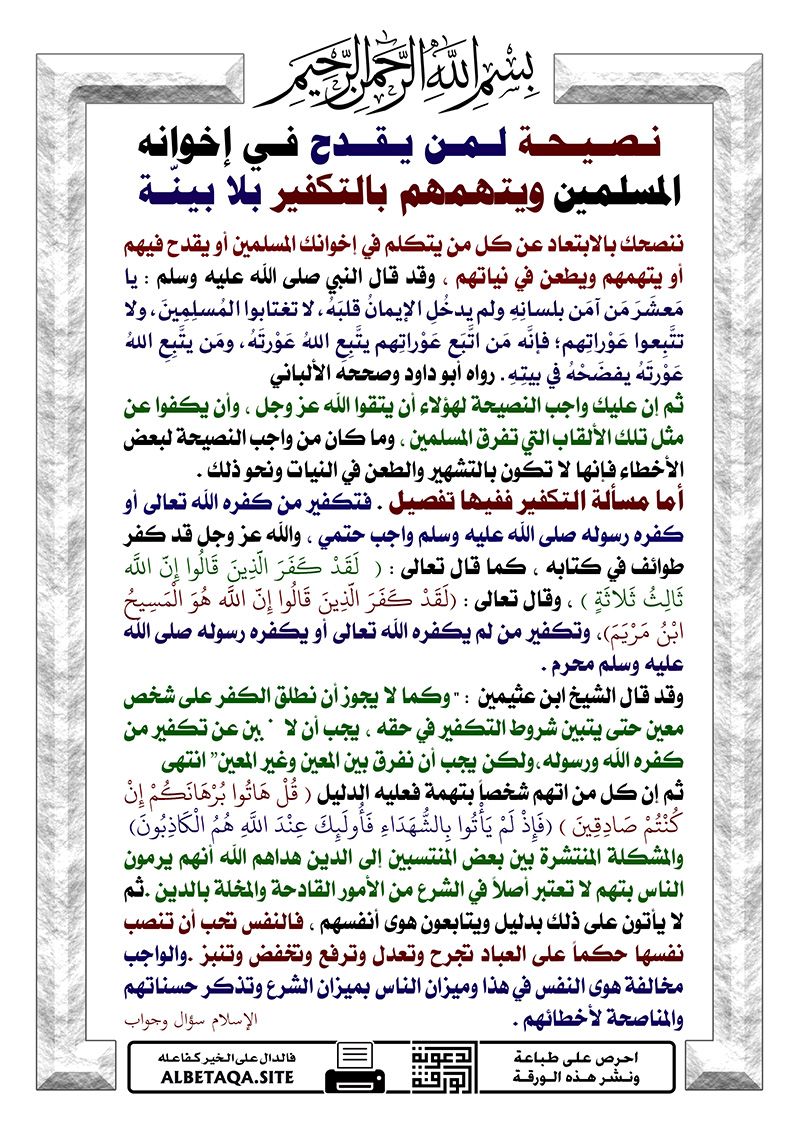 بِسْمِ اللَّهِ الرَّحْمَنِ الرَّحِيمِ
نصيحة لمن يقدح في إخوانه
المسلمين ويتهمهم بالتكفير بلا بينّة
ننصحك بالابتعاد عن كل من يتكلم في إخوانك المسلمين أو يقدح فيهم
أو يتهمهم ويطعن في نياتهم ، وقد قال النبي صلى الله عليه وسلم : يا
مَعشَرَ مَن آمَن بلسانِهِ ولم يدخُلِ الإيمانُ قلبَهُ، لا تغتابوا المُسلِمِينَ، ولا
تتَّبِعوا عَوْراتِهِم؛ فإنَّه مَن اتَّبَع عَوْراتِهم يتَّبِعِ اللهُ عَوْرتَهُ، ومَن يتَّبِعِ اللهُ
عَوْرتَهُ يفضَحْهُ في بيتِهِ. رواه أبو داود وصححه الألباني
ثم إن عليك واجب النصيحة لهؤلاء أن يتقوا الله عز وجل ، وأن يكفوا عن
مثل تلك الألقاب التي تفرق المسلمين ، وما كان من واجب النصيحة لبعض
الأخطاء فإنها لا تكون بالتشهير والطعن في النيات ونحو ذلك .
أما مسألة التكفير ففيها تفصيل . فتكفير من كفره الله تعالى أو
كفره رسوله صلى الله عليه وسلم واجب حتمي ، والله عز وجل قد كفر
طوائف في كتابه ، كما قال تعالى : ( لَقَدْ كَفَرَ الَّذِينَ قَالُوا إِنَّ اللَّه
ثَالِثُ ثَلاثَةٍ ) ، وقال تعالى : (لَقَدْ كَفَرَ الَّذِينَ قَالُوا إِنَّ اللَّه هُوَ الْمَسِيحُ
ابْنُ مَرْيَمَ)، وتكفير من لم يكفره الله تعالى أو يكفره رسوله صلى الله
عليه وسلم محرم .
وقد قال الشيخ ابن عثيمين : " وكما لا يجوز أن نطلق الكفر على شخص
معين حتى يتبين شروط التكفير في حقه ، يجب أن لا عن تكفير من
كفره الله ورسوله،ولكن يجب أن نفرق بين المعين وغير المعين" انتهى
ثم إن كل من اتهم شخصاً بتهمة فعليه الدليل ( قُلْ هَاتُوا بُرْهَانَكُمْ إِنْ
كُنْتُمْ صَادِقِينَ ) (فَإِذْ لَمْ يَأْتُوا بِالشُّهَدَاءِ فَأُولَئِكَ عِنْدَ اللَّهِ هُمُ الْكَاذِبُونَ)
والمشكلة المنتشرة بين بعض المنتسبين إلى الدين هداهم الله أنهم يرمون
الناس بتهم لا تعتبر أصلاً في الشرع من الأمور القادحة والمخلة بالدين .ثم
لا يأتون على ذلك بدليل ويتابعون هوى أنفسهم ، فالنفس تحب أن تنصب
نفسها حكماً على العباد تجرح وتعدل وترفع وتخفض وتنبز .والواجب
مخالفة هوى النفس في هذا وميزان الناس بميزان الشرع وتذكر حسناتهم
والمناصحة لأخطائهم . الإسلام سؤال وجواب
احرص على طباعة
ونشر هذه الورقة
الورقة الدعوية
فالدال على الخير كفاعله
ALBETAQA.SITE